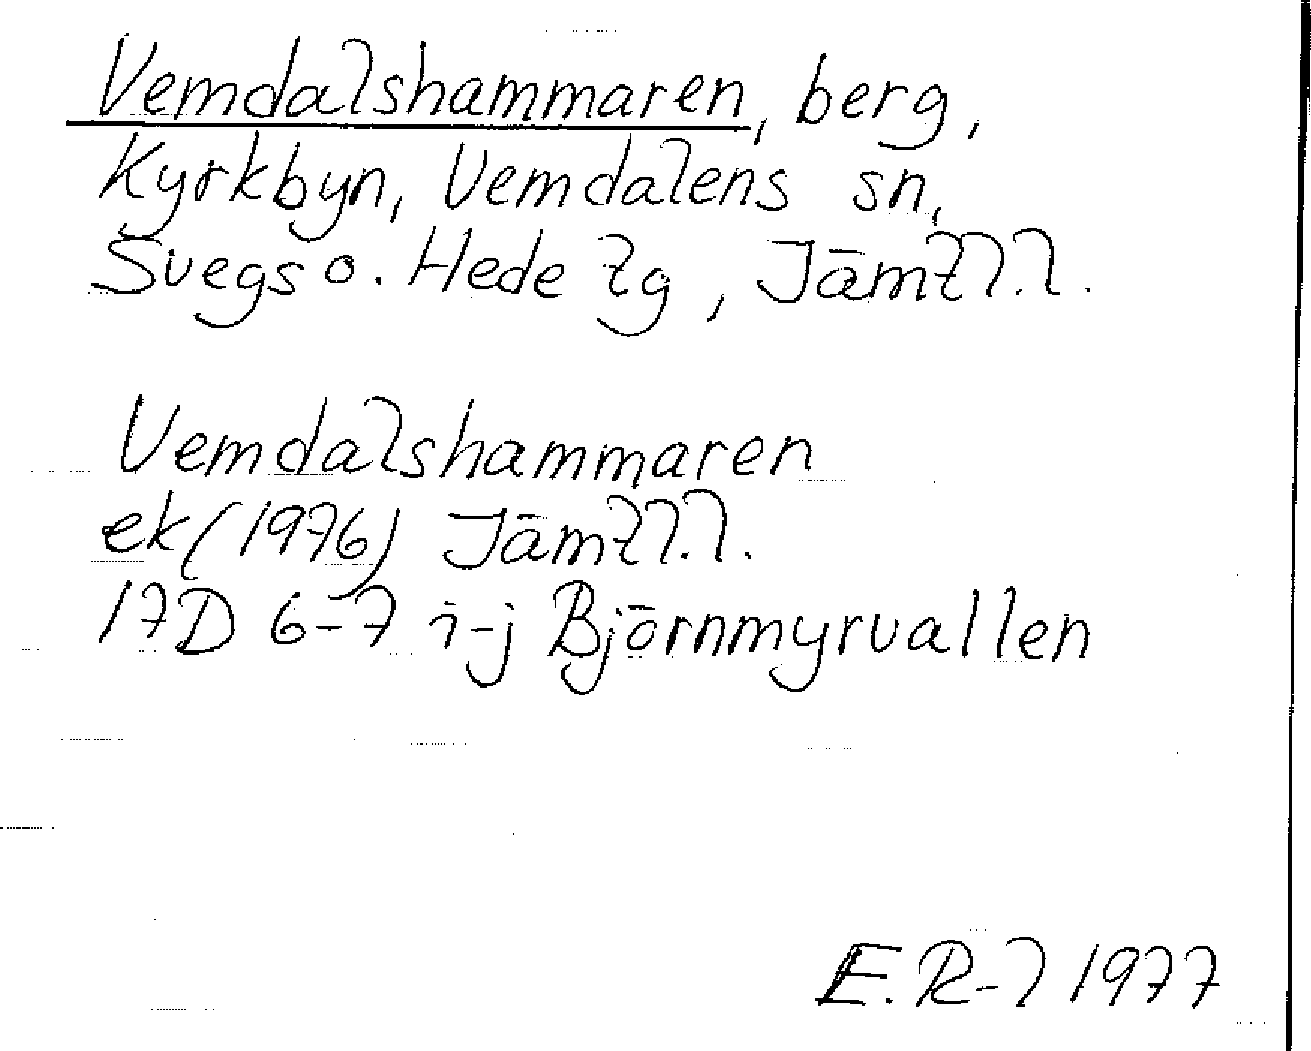 Vemdalshammaren, berg,
Kyrkbyn, Vemdalens sn,
Svegs o. Hede tg, Jämtl.l.
Vemdalshammaren
ek (1976) Jämtl.l.
17D 6-7 i-j Björnmyrvallen
E.R-l 1977